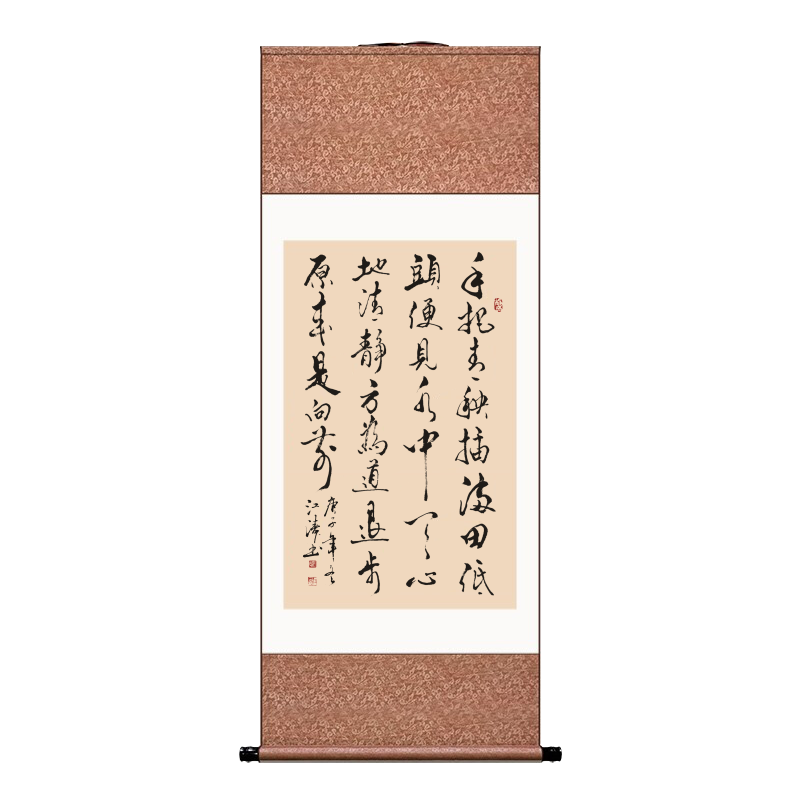 手把青秧插滿田低
頭便見水中天心
地清靜方為道退步
原来是向前
庚子年冬
江濤书